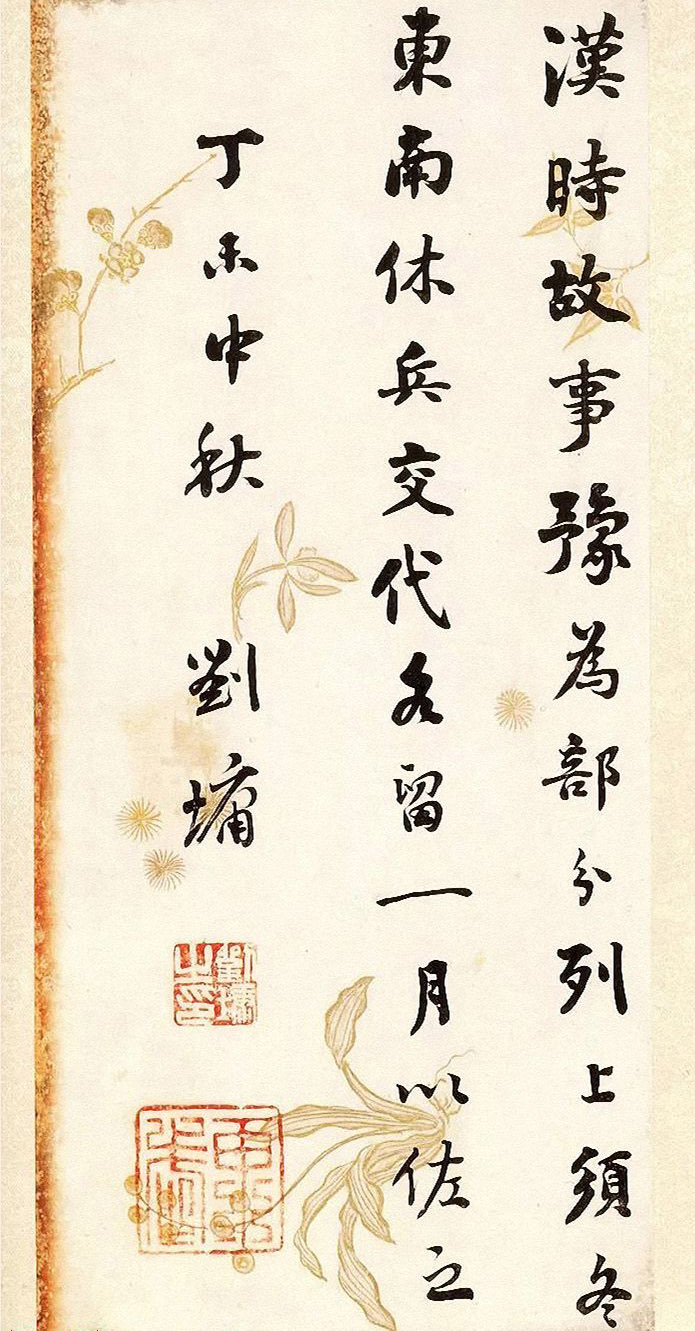 漢時故事豫為部分列上須冬
東南休兵交代各留一月以佐之
丁未中秋 劉墉
劉墉之印